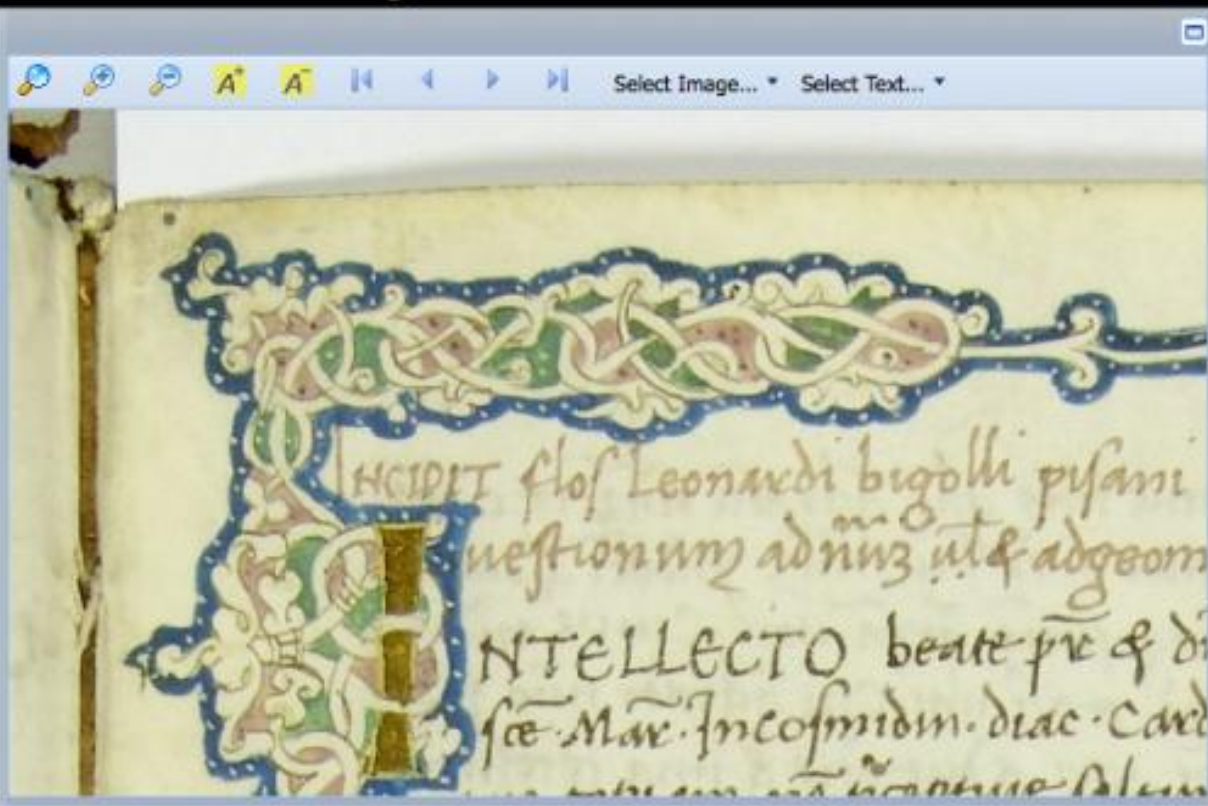 Select Image... Select Text...
INCIPIT flos Leonardi bigolli pisani
uestionum ad nũ ul &amp; ad geom
INTELLECTO beate pr̃ &amp; d
sce̅ Mar̃. In cosmidin. diac. Card